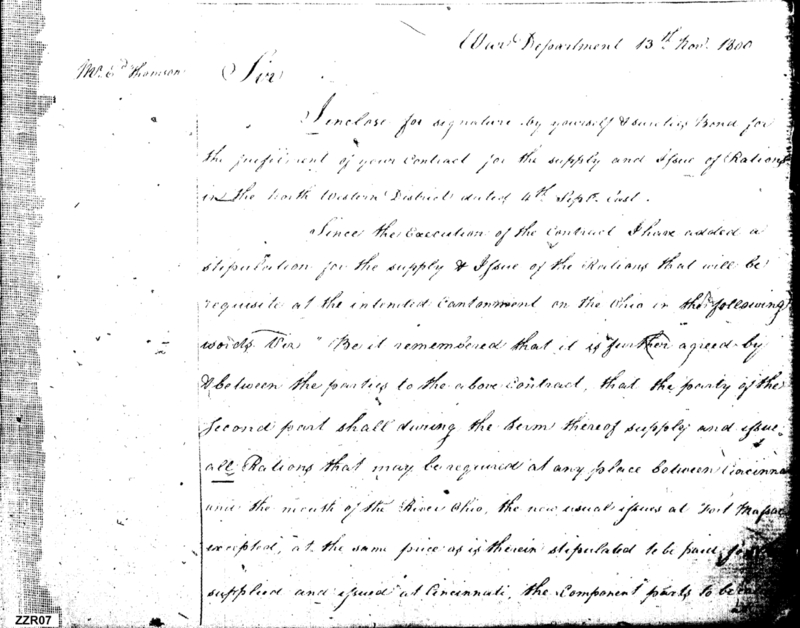 War Department 13th Novr. 1800
Mr. Ed. Thomson
Sir
I inclose for signature by yourself & sureties Bond for
the fulfilment of your Contract for the supply and Issue of Rations
in the North Western District dated 4th. Sept. last.
Since the Execution of the Contract I have added a
stipulation for the supply & Issue of the Rations that will be
requisite at the intended Cantonment on the Ohio in the following
words Viz "Be it remembered that it is further agreed by
& between the parties to the above Contract, that the party of the
Second part shall during the term thereof supply and issue
all Rations that may be required at any place between Cincinnati
and the mouth of the River Ohio, the now usual issues at Fort Massac
excepted, at the same price as is therein stipulated to be paid for
supplied and issued at Cincinnati, the Component parts to be
ZZR07